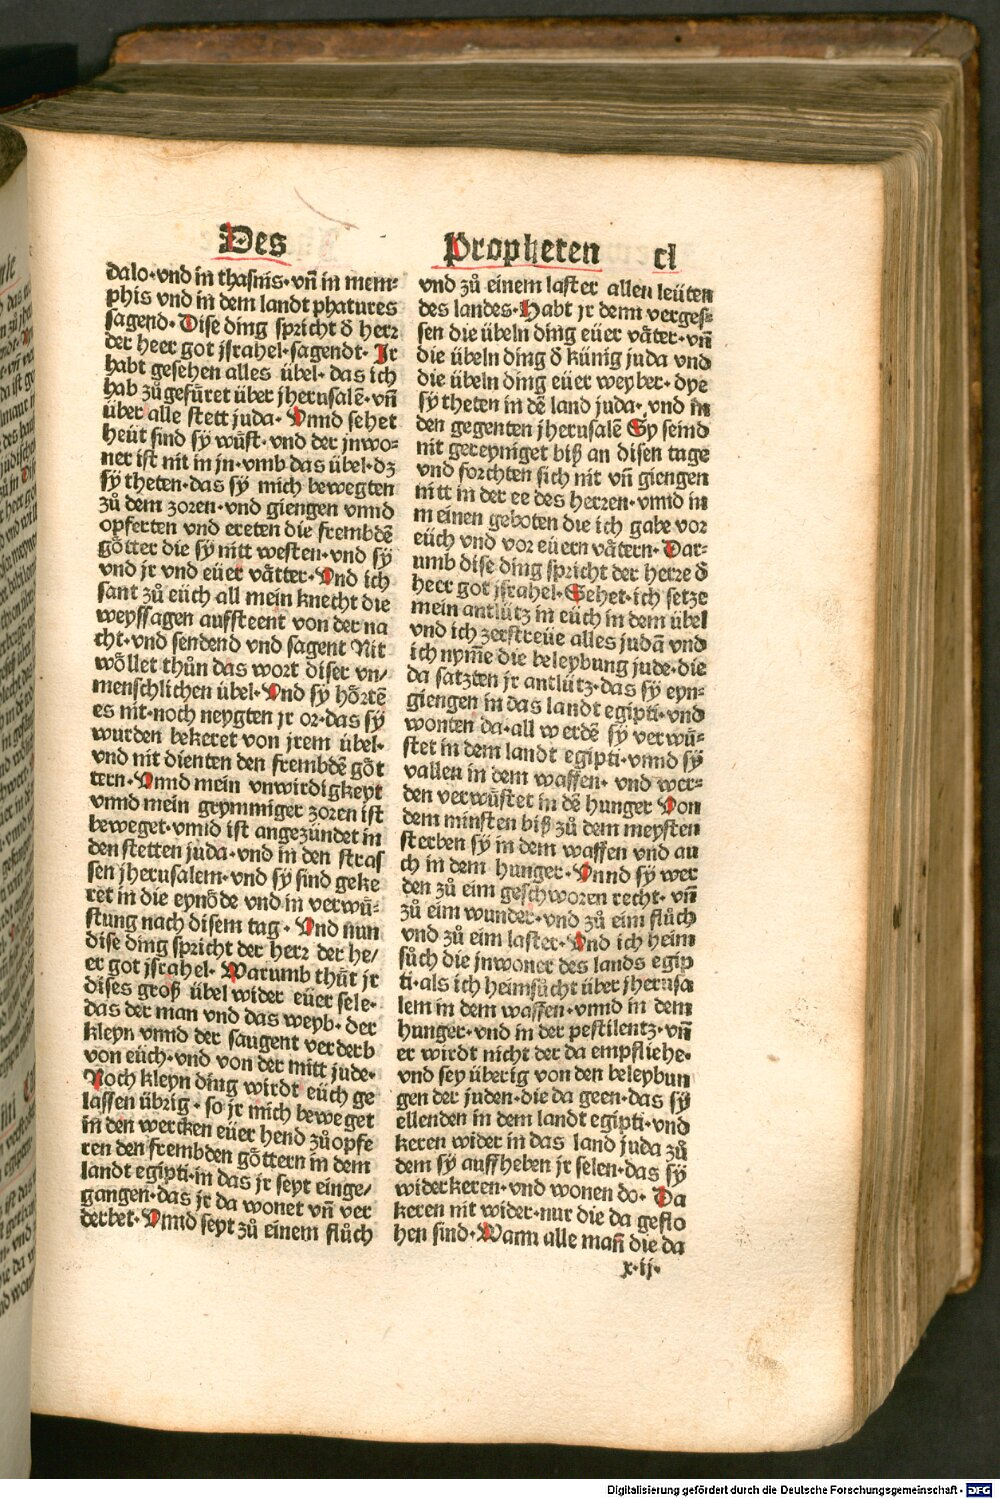 Des
Propheten cl
dalo·vnd in thasnis·vñ in mem⸗
phis vnd in dem landt phatures
sagend·Dise ding spricht d̄ herr
der heer got jsrahel·sagendt·Ir
habt gesehen alles übel·das ich
hab zůgefüret über jherusalē·vñ
über alle stett juda·Vnnd sehet
heüt sind sÿ wüst·vnd der jnwo⸗
ner ist nit in jn·vmb das übel·dz
sÿ theten·das sÿ mich bewegten
zů dem zoren·vnd giengen vnnd
opferten vnd ereten die frembdē
götter die sÿ nitt westen·vnd sÿ
vnd jr vnd eüer vätter·Vnd ich
sant zů eüch all mein knecht die
weyssagen auffsteent von der na
cht·vnd sendend vnd sagent Nit
wöllet thůn das wort diser vn/
menschlichen übel·Vnd sÿ hörtē
es nit·noch neygten jr or·das sÿ
wurden bekeret von jrem übel·
vnd nit dienten den frembdē göt
tern·Vnnd mein vnwirdigkeyt
vnnd mein grymmiger zoren ist
beweget·vnnd ist angezündet in
den stetten juda·vnd in den stras
sen jherusalem·vnd sÿ sind geke
ret in die eynöde vnd in verwü⸗
stung nach disem tag·Vnd nun
dise ding spricht der herr der he/
er got jsrahel·Warumb thüt jr
dises groß übel wider eüer sele·
das der man vnd das weyb·der
kleyn vnnd der saugent verderb
von eüch·vnd von der mitt jude·
Noch kleyn ding wirdt eüch ge
lassen übrig·so jr mich beweget
in den wercken eüer hend zůopfe
ren den frembden göttern in dem
landt egipti·in das jr seyt einge/
gangen·das jr da wonet vñ ver
derbet·Vnnd seyt zů einem flůch
vnd zů einem laster allen leüten
des landes·Habt jr denn verges⸗
sen die übeln ding eüer väter·vñ
die übeln ding d̄ künig juda vnd
die übeln ding eüer weyber·dye
sÿ theten in dē land juda·vnd in
den gegenten jherusalē Sy seind
nit gereyniget biß an disen tage
vnd forchten sich nit vñ giengen
nitt in der ee des herren·vnnd in
meinen geboten die ich gabe vor
eüch vnd vor eüern vätern·Dar⸗
umb dise ding spricht der herre d̄
heer got jsrahel·Sehet·ich setze
mein antlütz in eüch in dem übel
vnd ich zerstreüe alles judā vnd
ich nym̄e die beleybung jude·die
da satzten jr antlütz·das sÿ eyn⸗
giengen in das landt egipti·vnd
wonten da·all werdē sÿ verwü⸗
stet in dem landt egipti·vnnd sÿ
vallen in dem waffen·vnd wer⸗
den verwüstet in dē hunger Von
dem minsten biß zů dem meysten
sterben sÿ in dem waffen vnd au
ch in dem hunger·Vnnd sÿ wer
den zů eim geschworen recht·vñ
zů eim wunder·vnd zů eim flůch
vnd zů eim laster·Vnd ich heim
sůch die jnwoner des lands egip
ti·als ich heimsůcht über jherusa
lem in dem waffen·vnnd in dem
hunger·vnd in der pestilentz·vñ
er wirdt nicht der da empfliehe·
vnd sey überig von den beleybun
gen der juden·die da geen·das sÿ
ellenden in dem landt egipti·vnd
keren wider in das land juda zů
dem sÿ auffheben jr selen·das sÿ
widerkeren·vnd wonen do·Da
keren nit wider·nur die da geflo
hen sind·Wann alle man̄ die da
x·ij·
Digitalisierung gefördert durch die Deutsche Forschungsgemeinschaft - DFG